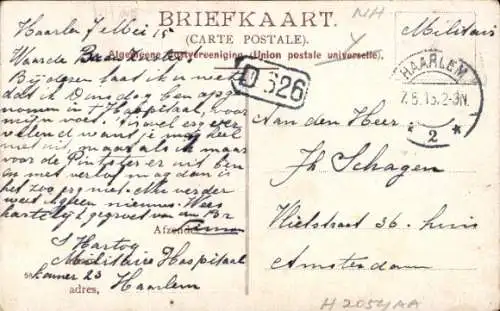 BRIEFKAART.
(CARTE POSTALE.)
Algemeene Postvereeniging (Union postale universelle).
NH
Militair
Haarlem 7 Mei 15
Waarde
Bij dezen laat ik u weten
dat ik Dinsdag ben opge
nomen in t Hospitaal, voor
mijn voet. Nu wel erg ver
velend want je mag heel
niet uit, maar als ik maar
voor de Pinkster er uit ben
en met verlof mag dan is
het zoo erg niet. Nu verder
weet ik geen nieuws. Wees
hartelijk gegroet van
Afzender
S Hartog
Militaire Hospitaal
kamer 23
adres, Haarlem
626
HAARLEM
7.5.15.2-3N.
* 2 *
Aan den Heer
Jh Schagen
Vlietstraat 36. huis
Amsterdam
H2054AA